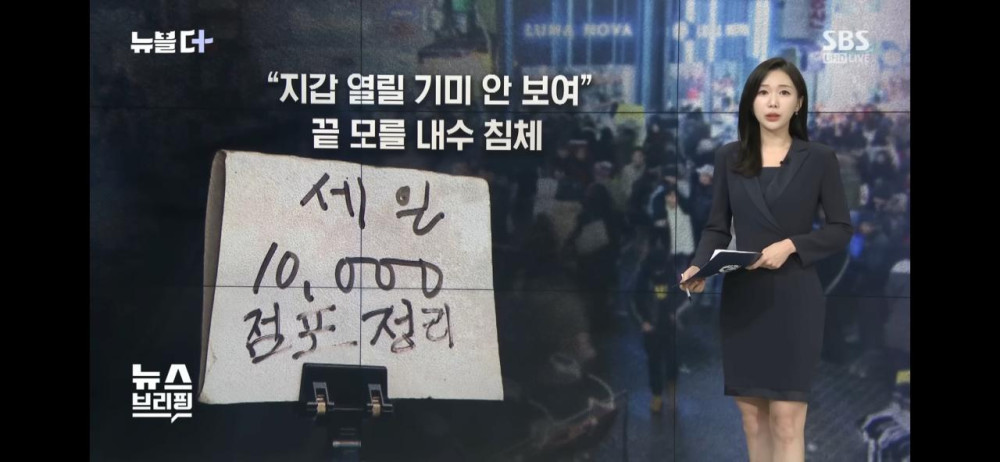 뉴블더+
LUMA NOVA
SBS
UHD LIVE
“지갑 열릴 기미 안 보여”
끝 모를 내수 침체
세일
10,000
점포 정리
뉴스
브리핑